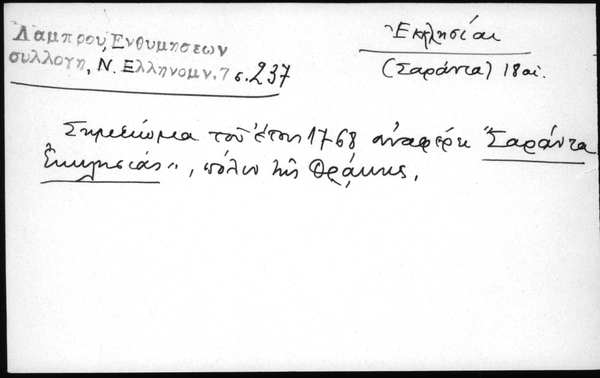 Λάμπρου, Ἐνθυμήσεων
συλλογή, Ν. Ἑλληνομν. 7 σ. 237
Ἐκκλησίαι
(Σαράντα) 18 αἰ.
Σημείωμα τοῦ ἔτους 1768 ἀναφέρει "Σαράντα
Ἐκκλησιάς", πόλιν τῆς Θράκης.